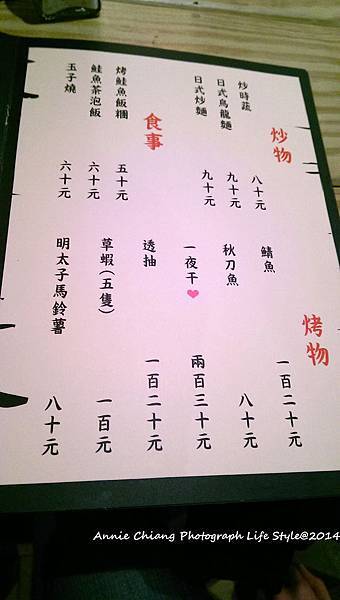 炒物
炒時蔬 八十元
日式烏龍麵 九十元
日式炒麵 九十元
食事
烤鮭魚飯糰 五十元
鮭魚茶泡飯 六十元
玉子燒 六十元
烤物
鯖魚 一百二十元
秋刀魚 八十元
一夜干❤ 兩百三十元
透抽 一百二十元
草蝦(五隻) 一百元
明太子馬鈴薯 八十元
Annie Chiang Photograph Life Style@2014